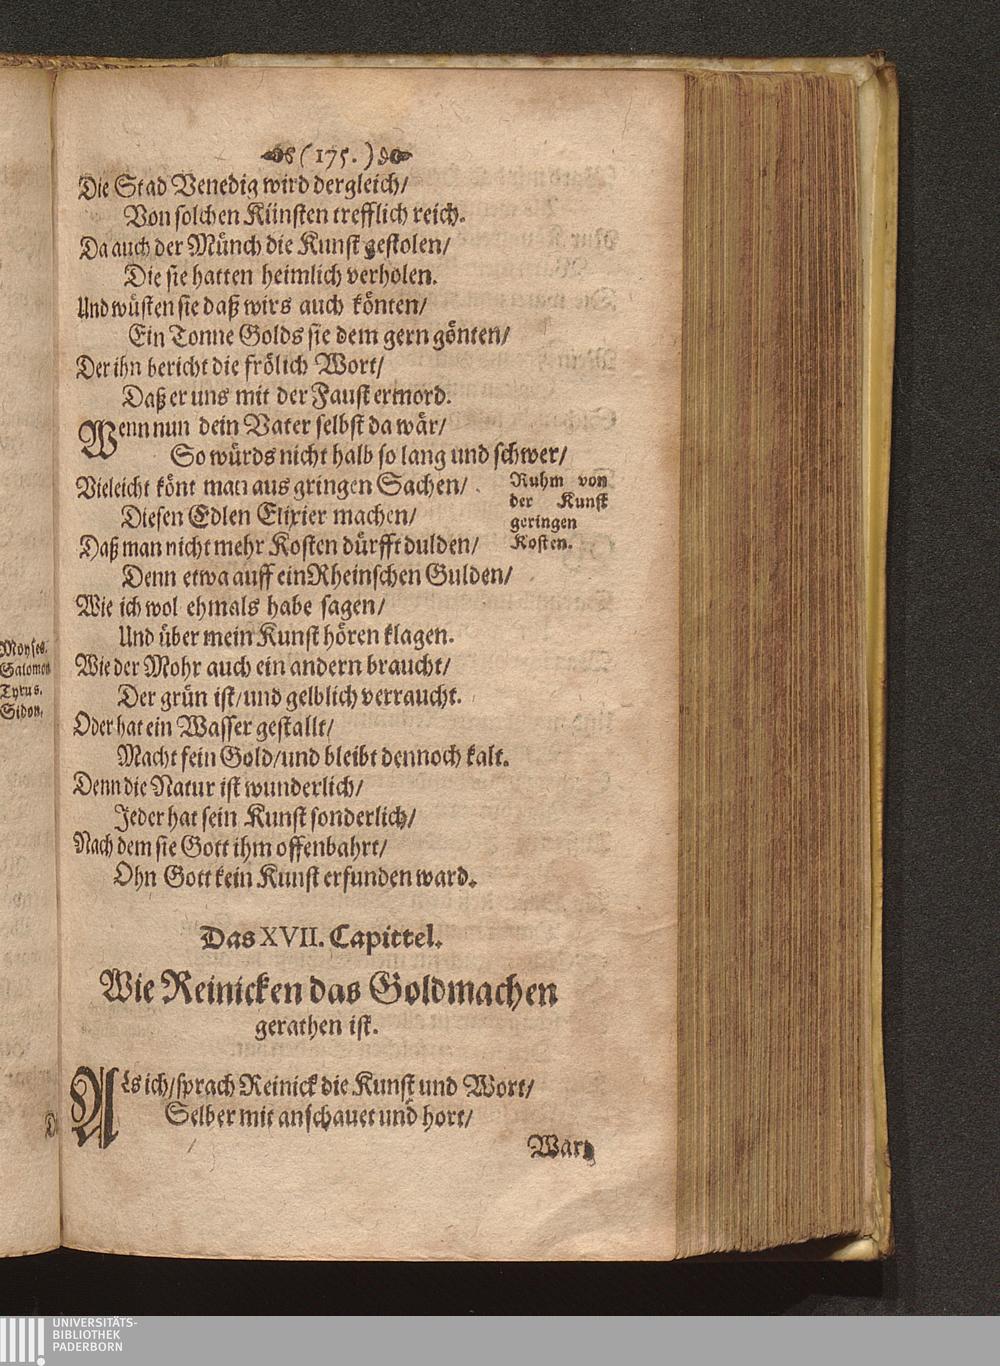 (175.)
Die Stad Venedig wird dergleich/
Von solchen Künsten trefflich reich.
Da auch der Münch die Kunst gestolen/
Die sie hatten heimlich verholen.
Und wüsten sie daß wirs auch könten/
Ein Tonne Golds sie dem gern gönten/
Der ihn bericht die frölich Wort/
Daß er uns mit der Faust ermord.
Wenn nun dein Vater selbst da wär/
So würds nicht halb so lang und schwer/
Vieleicht könt man aus gringen Sachen/
Diesen Edlen Elixier machen/
Daß man nicht mehr Kosten dürfft dulden/
Denn etwa auff ein Rheinschen Gulden/
Wie ich wol ehmals habe sagen/
Und über mein Kunst hören klagen.
Wie der Mohr auch ein andern braucht/
Der grün ist/und gelblich verraucht.
Oder hat ein Wasser gestallt/
Macht fein Gold/und bleibt dennoch kalt.
Denn die Natur ist wunderlich/
Jeder hat sein Kunst sonderlich/
Nach dem sie Gott ihm offenbahrt/
Ohn Gott kein Kunst erfunden ward.
Ruhm von
der Kunst
geringen
Kosten.
Das XVII. Capittel.
Wie Reinicken das Goldmachen
gerathen ist.
Als ich/sprach Reinick die Kunst und Wort/
Selber mit anschauet und hort/
War
Moyses.
Salomon
Tyrus.
Sidon.
UNIVERSITÄTS-
BIBLIOTHEK
PADERBORN